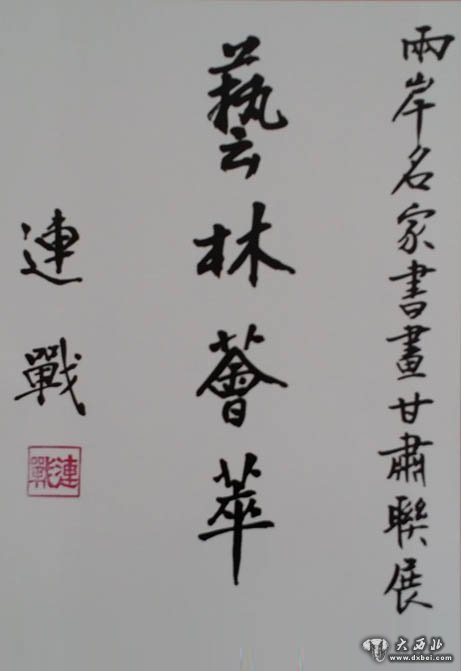 兩岸名家書畫甘肅聯展
藝林薈萃
連戰
連戰
大西北
www.dxbei.com